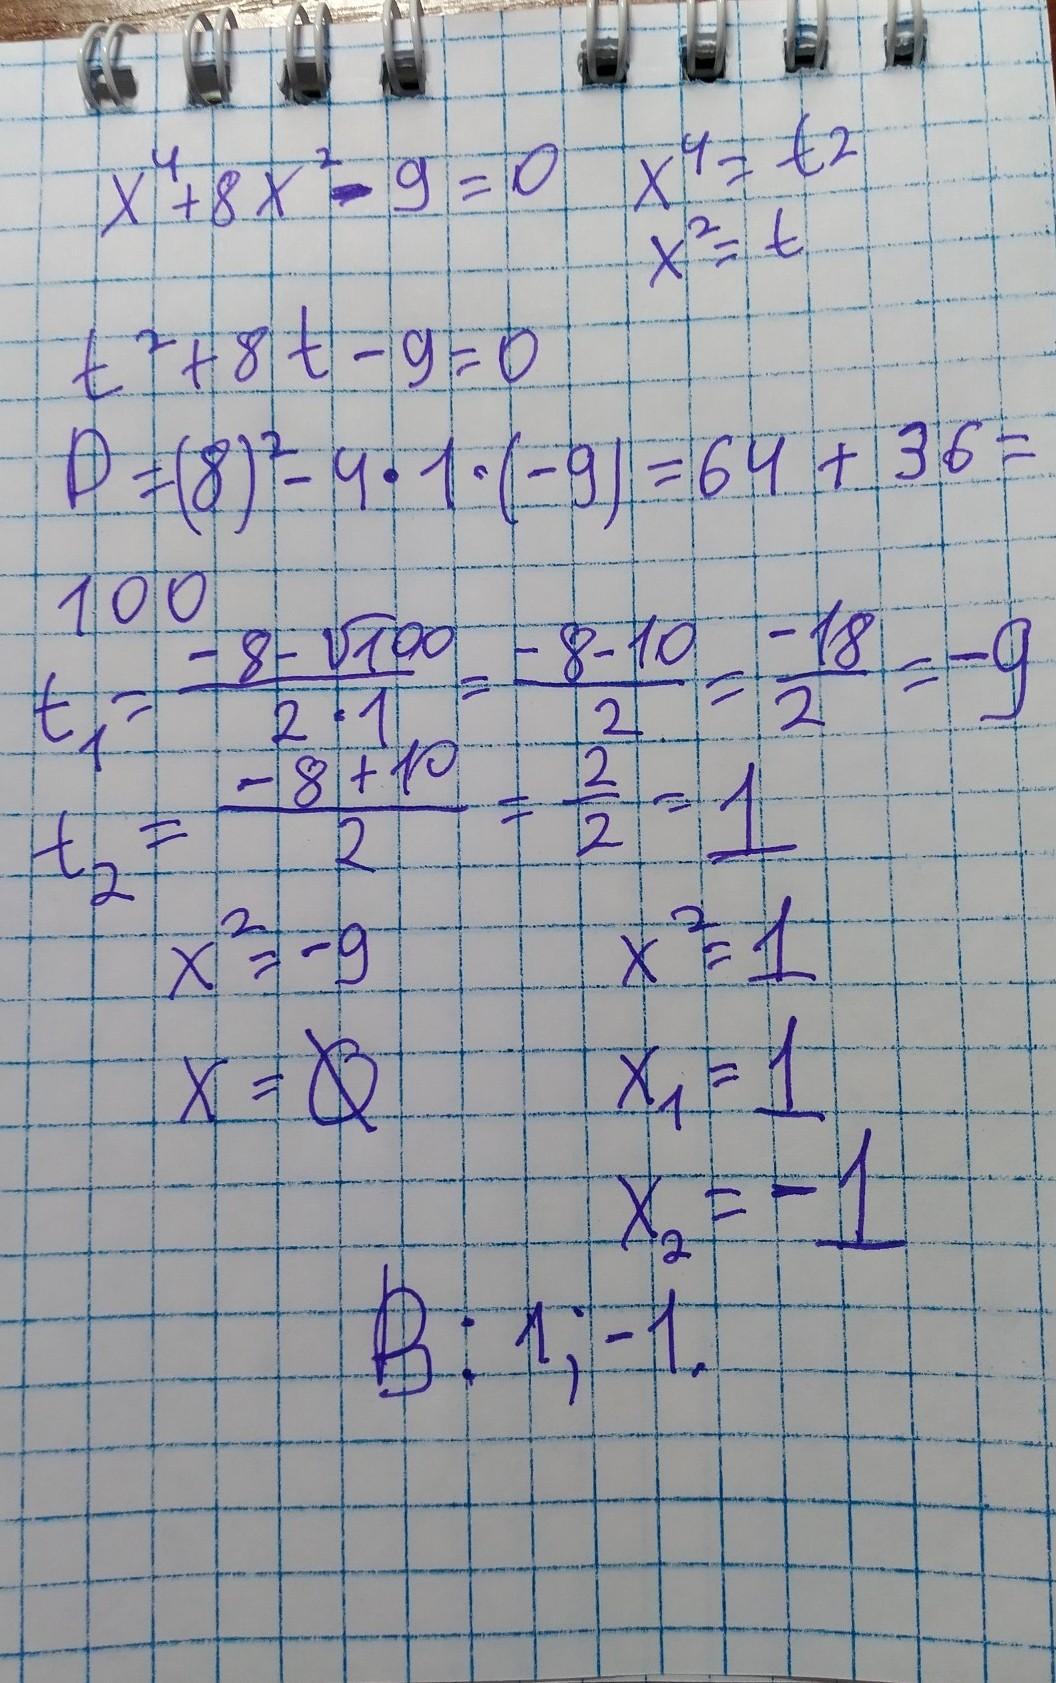 x⁴+8x²-9=0 x⁴=t2
x²=t
t²+8t-9=0
D=(8)²-4·1·(-9)=64+36=
100
t₁=(-8-√100)/(2·1)=(-8-10)/2=(-18)/2=-9
t₂=(-8+10)/2=2/2=1
x²=-9 x²=1
x=∅ x₁=1
x₂=-1
В: 1; -1.